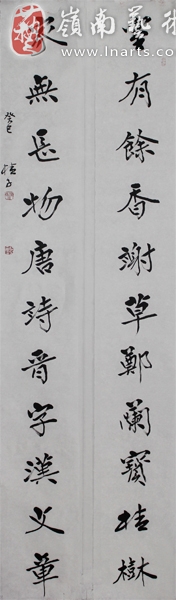 嶺南藝術
www.lnarts.com
有餘香謝草鄭蘭竇桂樹
無長物唐詩晉字漢文章
癸巳